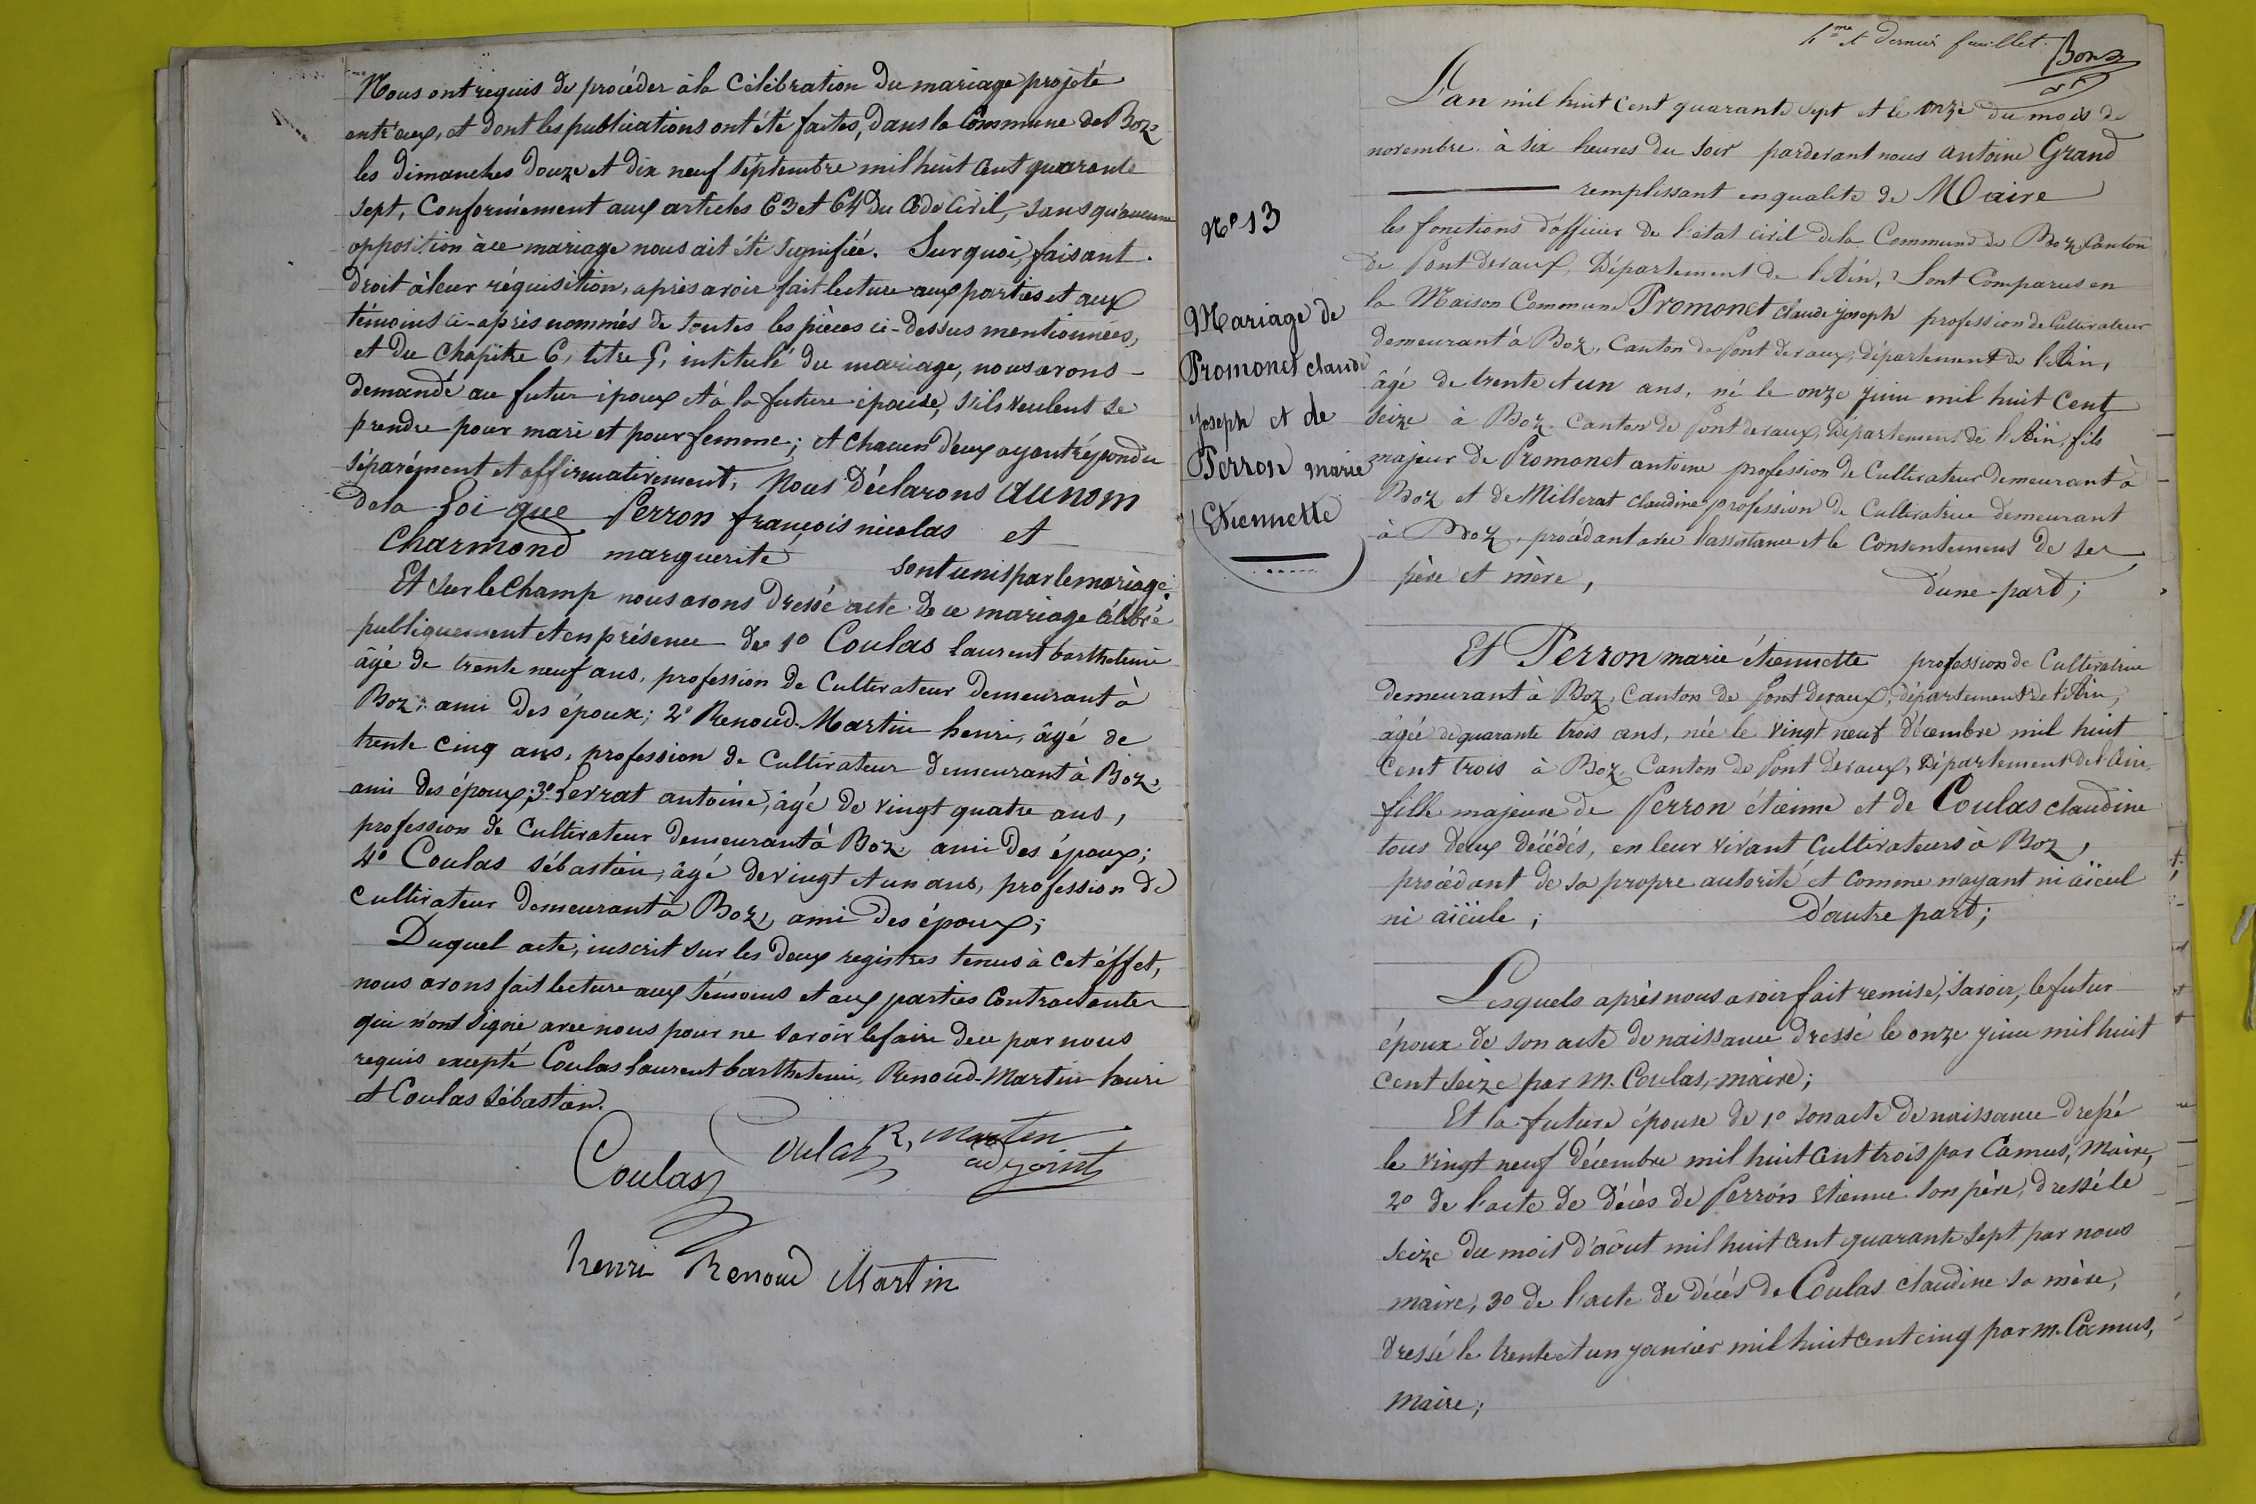 Nous ont requis de procéder à la Célébration du mariage projeté
entr'eux, et dont les publications ont été faites, dans la Commune de Boz,
les dimanches douze et dix neuf septembre mil huit cent quarante
sept, Conformément aux articles 63 et 64 du Code Civil, sans qu'aucune
opposition à ce mariage nous ait été signifiée. Sur quoi, faisant
droit à leur réquisition, après avoir fait lecture aux parties et aux
témoins ci-après nommés de toutes les pièces ci-dessus mentionnées,
et du Chapitre 6, titre 5, intitulé du mariage, nous avons
demandé au futur époux et à la future épouse, s'ils veulent se
prendre pour mari et pour femme; et chacun d'eux ayant répondu
séparément et affirmativement, Nous déclarons au nom
de la Loi que Perron françois nicolas et
Charmond marguerite sont unis par le mariage.
Et sur le Champ nous avons dressé acte de ce mariage célébré
publiquement et en présence de 1º Coulas laurent barthelemi
âgé de trente neuf ans, profession de Cultivateur demeurant à
Boz, ami des époux; 2º Renoud-Martin henri, âgé de
trente cinq ans, profession de Cultivateur demeurant à Boz,
ami des époux; 3º Levrat antoine, âgé de vingt quatre ans,
profession de Cultivateur demeurant à Boz, ami des époux;
4º Coulas sébastien, âgé de vingt et un ans, profession de
Cultivateur demeurant à Boz, ami des époux;
Duquel acte, inscrit sur les deux registres tenus à cet éffet,
nous avons fait lecture aux témoins et aux parties Contractantes
qui n'ont signé avec nous pour ne savoir le faire de ce par nous
requis excepté Coulas laurent barthelemi, Renoud-Martin henri
et Coulas sébastien.
Coulas Coulas R, Martin
adjoint
henri Renoud Martin
et dernier feuillet.
Nº 13
Mariage de
Promonet claude
joseph et de
Perron marie
Etiennette
L'an mil huit cent quarante sept et le onze du mois de
novembre à six heures du soir pardevant nous antoine Grand
remplissant en qualité de Maire
les fonctions d'officier de l'état civil de la Commune de Boz, Canton
de Pont devaux, Département de l'Ain, Sont Comparus en
la Maison Commune Promonet claude joseph profession de Cultivateur
demeurant à Boz, Canton de Pont devaux, département de l'Ain,
âgé de trente et un ans, né le onze juin mil huit Cent
seize à Boz, Canton de Pont devaux, Département de l'Ain, fils
majeur de Promonet antoine profession de Cultivateur demeurant à
Boz et de Millerat claudine profession de Cultivatrice demeurant
à Boz, procédant avec l'assistance et le Consentement de ses
père et mère, d'une part;
Et Perron marie étiennette profession de Cultivatrice
demeurant à Boz, Canton de Pont devaux, département de l'Ain,
âgée de quarante trois ans, née le vingt neuf décembre mil huit
Cent trois à Boz, Canton de Pont devaux, Département de l'Ain,
fille majeure de Perron étienne et de Coulas claudine
tous deux décédés, en leur vivant Cultivateurs à Boz,
procédant de sa propre autorité et comme n'ayant ni aïeul
ni aïeule; d'autre part;
Lesquels après nous avoir fait remise, savoir, le futur
époux de son acte de naissance dressé le onze juin mil huit
cent seize par M. Coulas, maire;
Et la future épouse de 1º son acte de naissance dressé
le vingt neuf décembre mil huit cent trois par Camus, Maire,
2º de l'acte de décès de Perron Etienne son père, dressé le
seize du mois d'août mil huit cent quarante sept par nous
maire, 3º de l'acte de décès de Coulas claudine sa mère,
dressé le trente et un janvier mil huit cent cinq par M. Camus,
Maire;